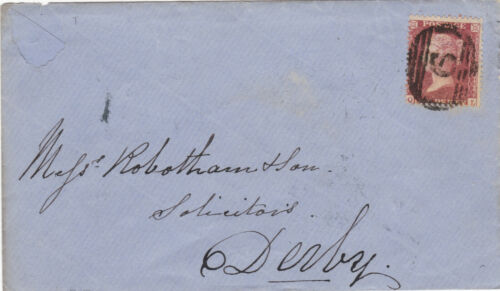 POSTAGE
Messrs. Robotham & Son.
Solicitors.
Derby.